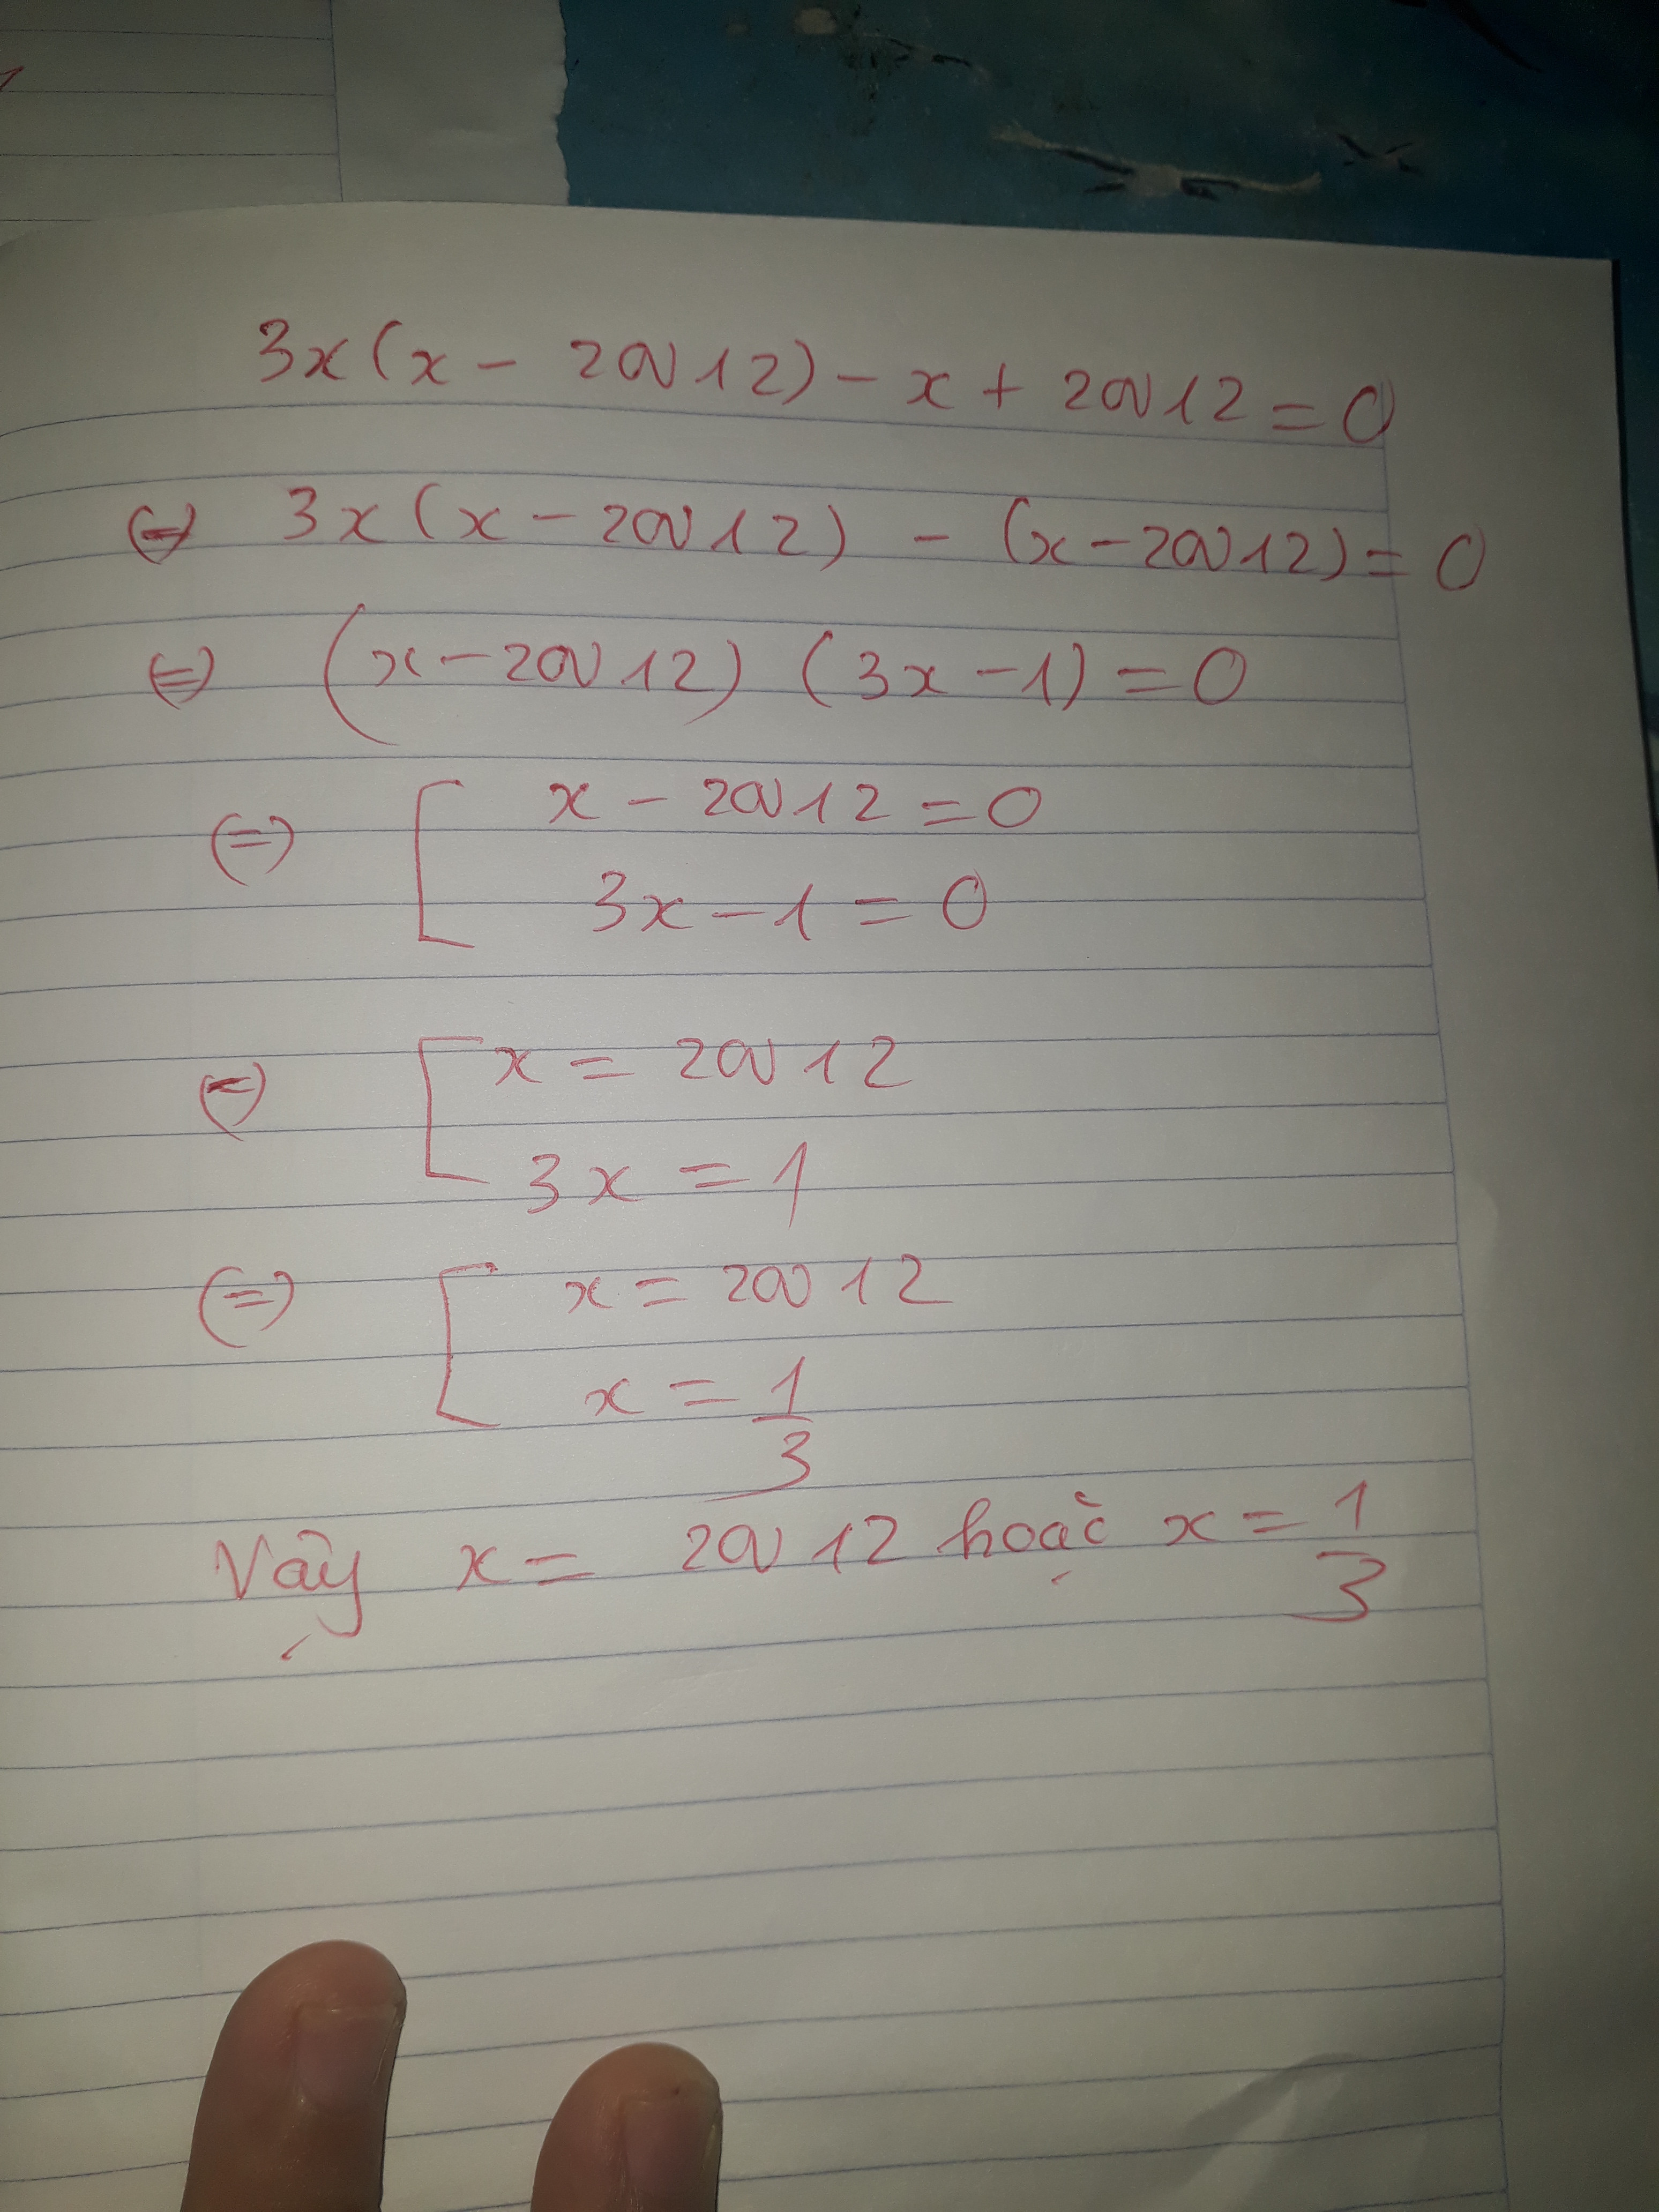 3x(x - 20012) - x + 20012 = 0
⇔ 3x(x - 20012) - (x - 20012) = 0
⇔ (x - 20012) (3x - 1) = 0
⇔ [ x - 20012 = 0
3x - 1 = 0
⇔ [ x = 20012
3x = 1
⇔ [ x = 20012
x = 1/3
Vậy x = 20012 hoặc x = 1/3